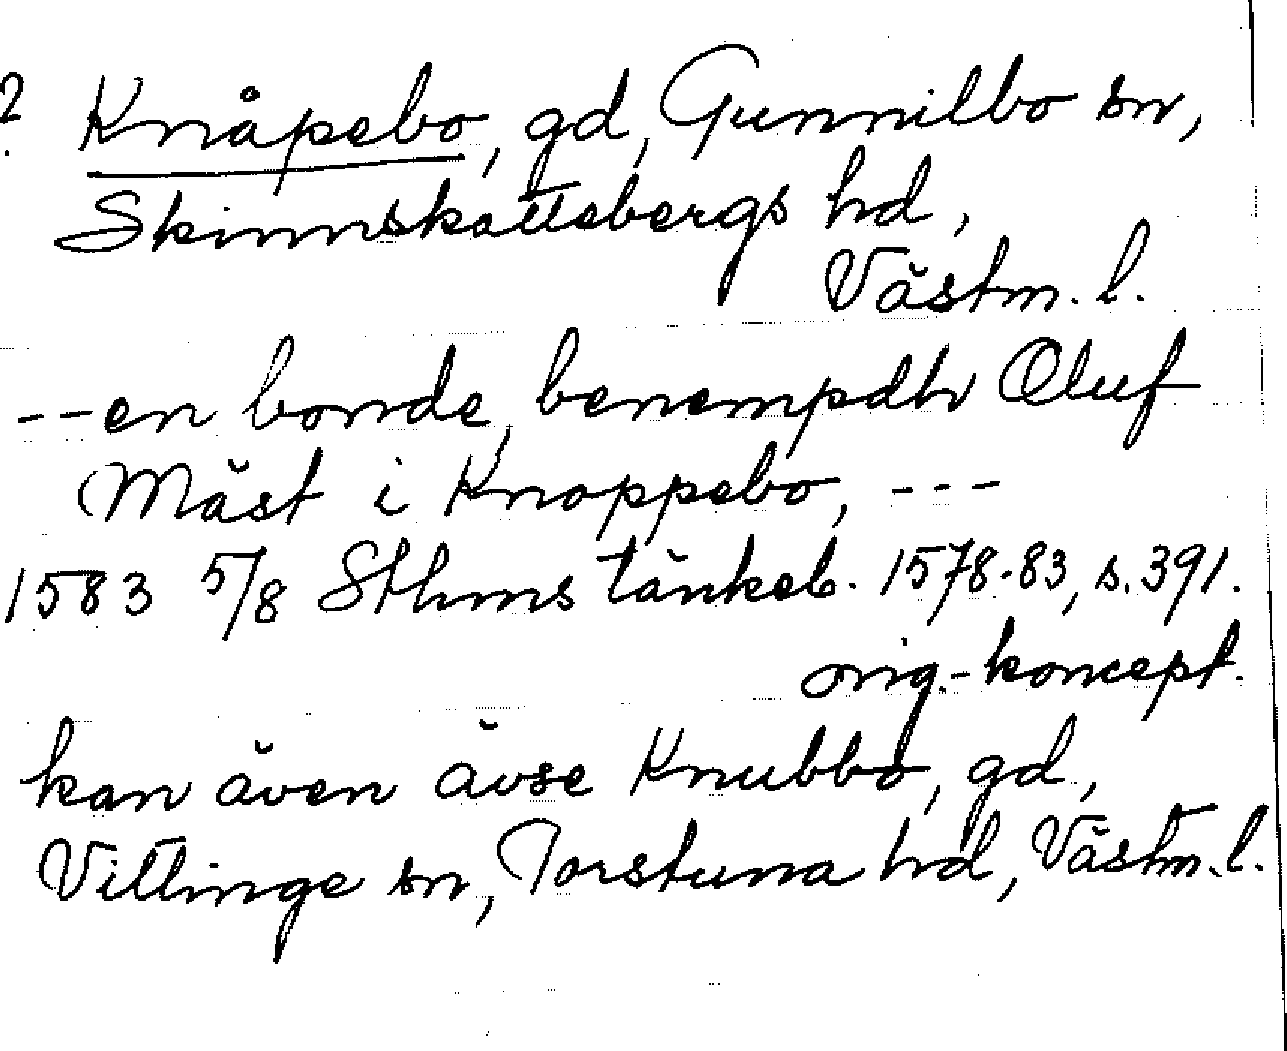 ? Knåpebo, gd, Gunnilbo sn,
Skinnskattebergs hd,
Västm. l.
--en bonde, benempdh Oluf
Mäst i Knoppebo, ---
1583 5/8 Sthms tänkeb. 1578-83, s. 391.
orig.-koncept.
kan även avse Knubbo, gd,
Vittinge sn, Torstuna hd, Västm. l.